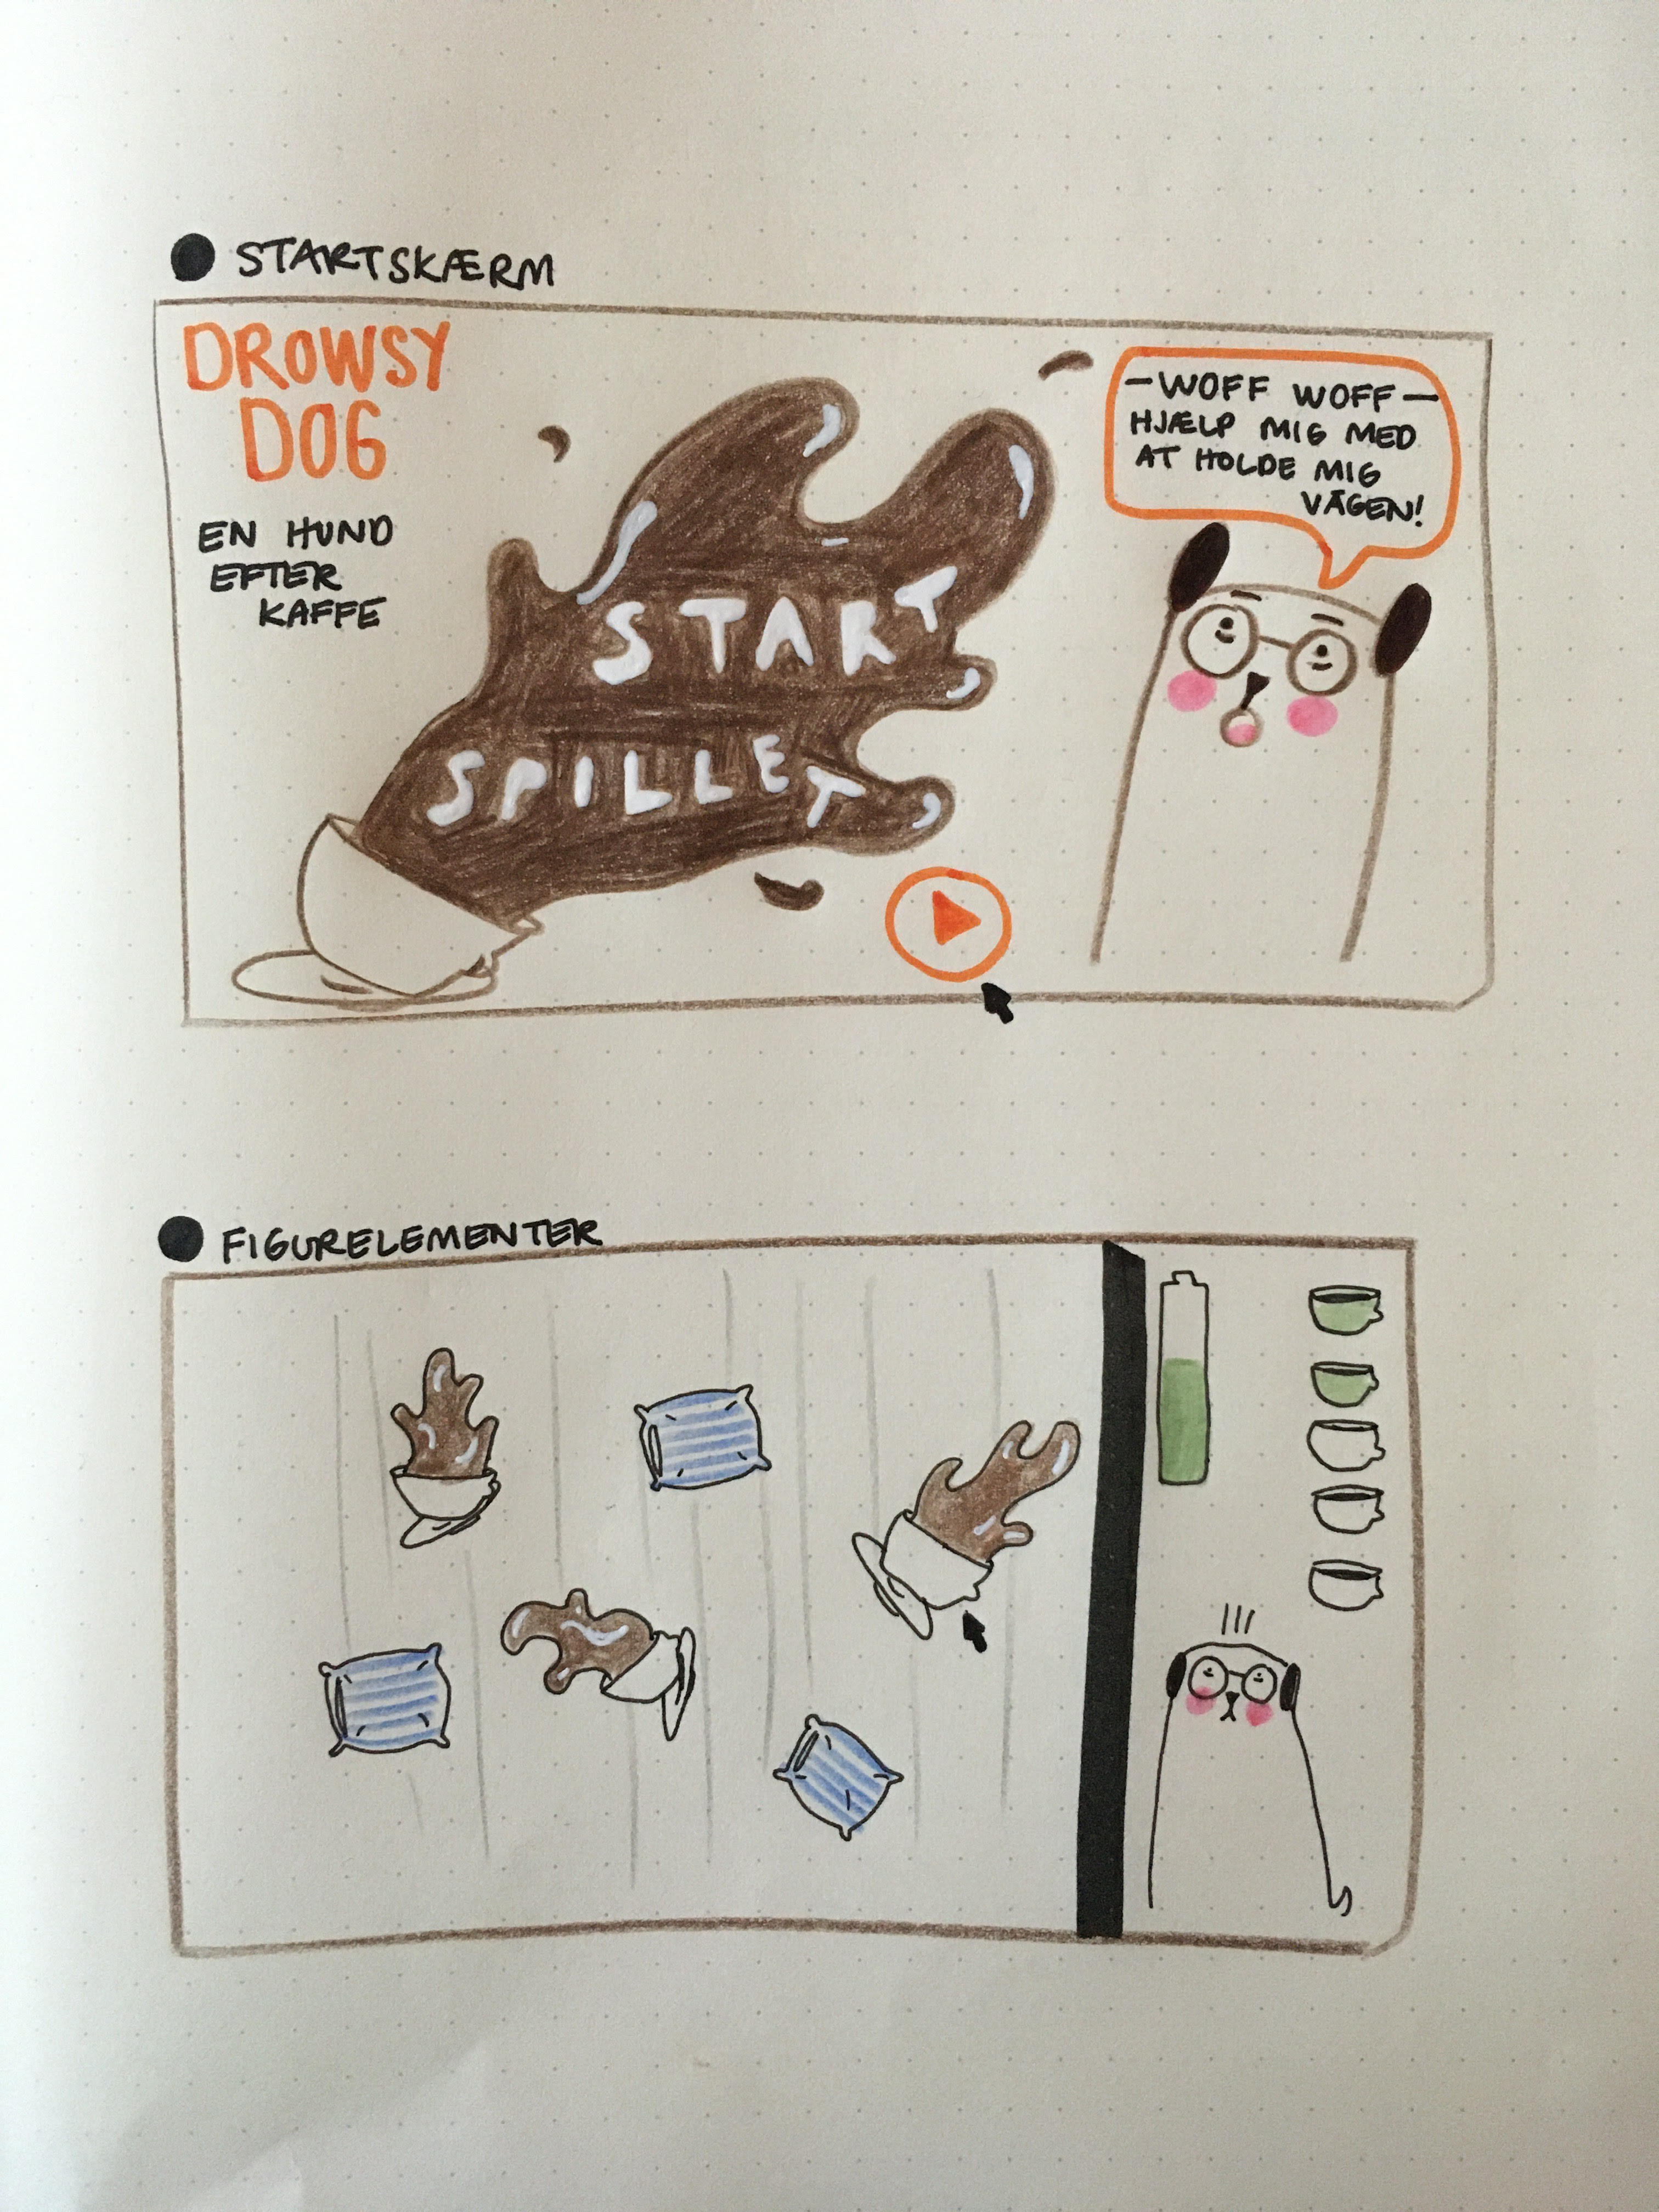 STARTSKÆRM
DROWSY
DOG
EN HUND
EFTER
KAFFE
START
SPILLET
—WOFF WOFF—
HJÆLP MIG MED
AT HOLDE MIG
VÅGEN!
FIGURELEMENTER